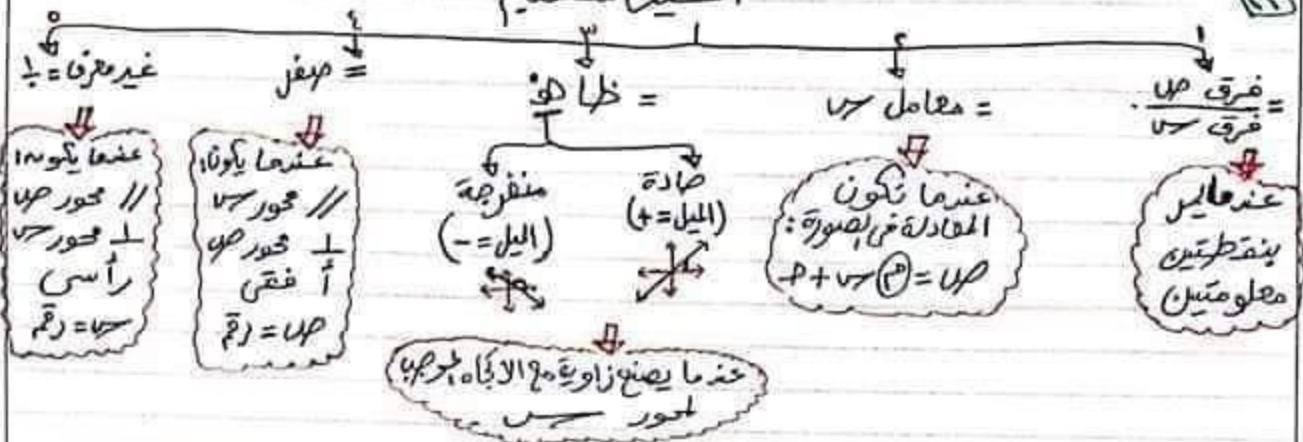 ١
= فرق ص / فرق س
عندما يمر
بنقطتين
معلومتين
٢
= معامل س
عندما تكون
المعادلة في الصورة:
ص = م س + جـ
٣
= ظا هـ
حادة
(الميل = +)
منفرجة
(الميل = -)
عندما يصنع زاوية مع الاتجاه الموجب
لمحور س
٤
= صفر
عندما يكون:
// محور س
⊥ محور ص
أفقى
ص = رقم
٥
غير معرف = ١/٠
عندما يكون:
// محور ص
⊥ محور س
رأسى
س = رقم